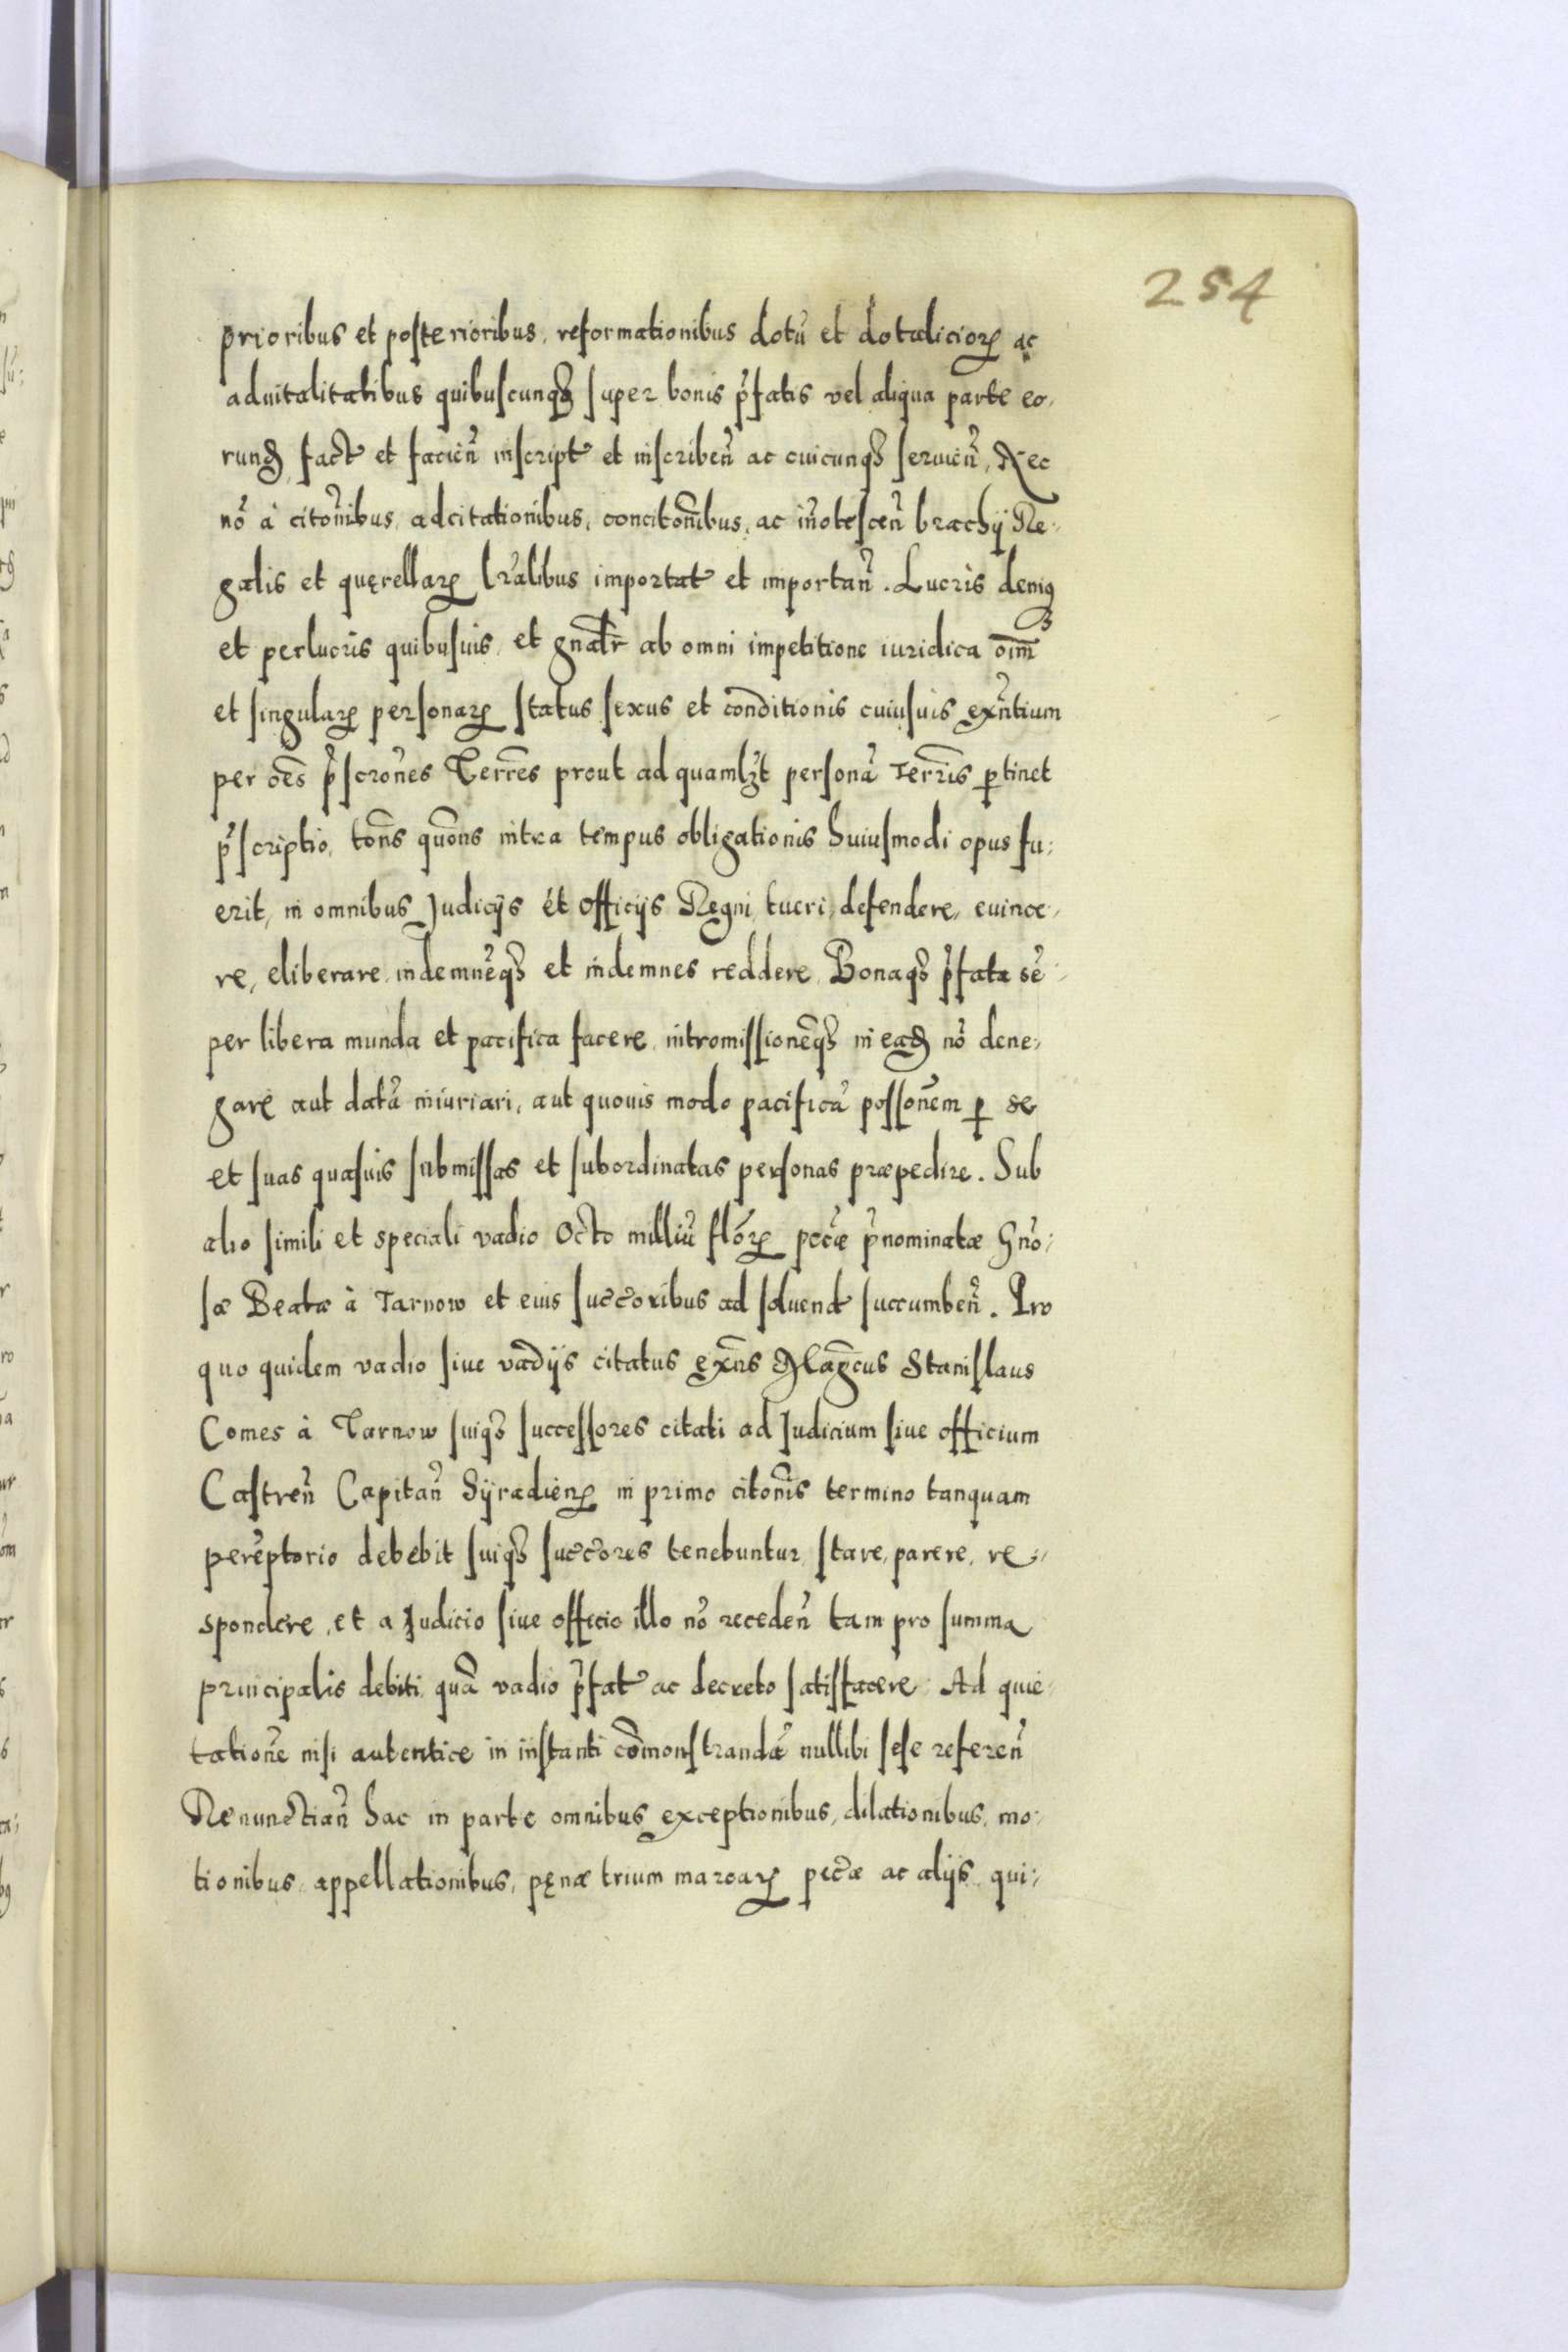 254
prioribus et posterioribus, reformationibus dotū et dotaliciorꝝ ac
advitalitatibus quibuscunqȝ super bonis p̄fatis vel aliqua parte eo,
rundē fact et facień inscript et inscribeń ac cuicunqȝ servień, Nec
nō à citōnibus, adcitationibus, concitōnibus, ac iñotesceń brachij Re-
galis et quęrellarꝝ lr̄alibus importat et importań. Lucris deniqȝ
et perlucris quibusvis, et gnāl̄r ab omni impetitione iuridica oīm̄
et singularꝝ personarꝝ status sexus et conditionis cuiusvis exn̄tium
per oēs p̄scrōnes Terrēs prout ad quamlꝫt personā Terrīs ꝑtinet
p̄scriptio, tōns quōns intra tempus obligationis huiusmodi opus fu:
erit, in omnibus Judicijs et Officijs Regni, tueri, defendere, evince,
re, eliberare, indemnēqȝ et indemnes reddere, Bonaqȝ p̄fata sē-
per libera munda et pacifica facere, intromissionēqȝ in eadē nō dene,
gare aut datā iniuriari, aut quovis modo pacificā possōnem ꝑ se
et suas quasvis submissas et subordinatas personas præpedire. Sub
alio simili et speciali vadio Octo milliū flōrꝝ pecc̄æ p̄nominatæ Gn̄o:
sæ Beatæ à Tarnow et eius succ̄oribus ad solvend succumbeń. Pro
quo quidem vadio sive vadijs citatus exn̄s Mag̃cus Stanislaus
Comes à Tarnow suiqȝ successores citati ad Judicium sive officium
Castreń Capitań Syradieńꝝ in primo citōnis termino tanquam
perēptorio debebit suiqȝ succ̄ores tenebuntur, stare, parere, re-
spondere, et a Judicio sive officio illo nō recedeń tam pro summa
principalis debiti, quā vadio p̄fat ac decreto satisfacere. Ad quie-
tationē nisi autentice in instanti cōmonstrandā nullibi sese refereń
Renunctiań hac in parte omnibus exceptionibus, dilationibus, mo-
tionibus, appellationibus, pęnæ trium marcarꝝ pec̄æ ac alijs qui-